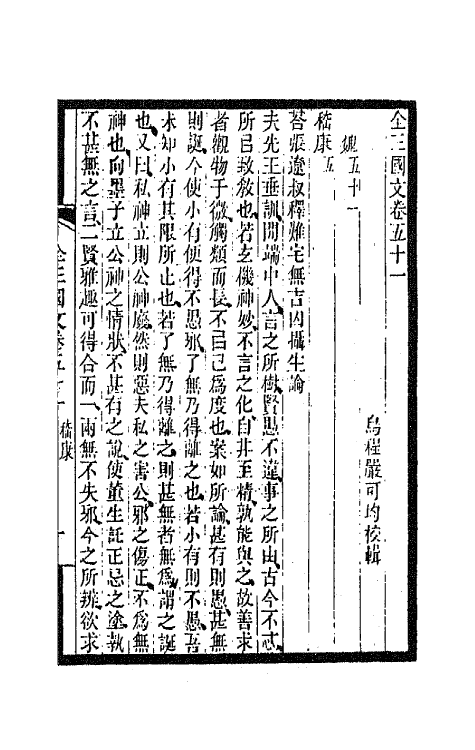 全三國文卷五十一
烏程嚴可均校輯
魏五十一
嵇康五
荅張遼叔釋難宅無吉凶攝生論
夫先王垂訓開端中人言之所樹賢愚不違事之所由古今不忒
所㠯致教也若玄機神妙不言之化自非至精孰能與之故善求
者觀物于微觸類而長不㠯己爲度也案如所論甚有則愚甚無
則誕今使小有便得不愚邪了無乃得離之也若小有則不愚吾
未知小有其限所止也若了無乃得離之則甚無者無爲謂之誕
也又曰私神立則公神廢然則惡夫私之害公邪之傷正不爲無
神也向墨子立公神之情狀不甚有之說使董生託正忌之塗執
不甚無之言二賢雅趣可得合而一兩無不失邪今之所辨欲求
全三國文卷五十一　嵇康　一